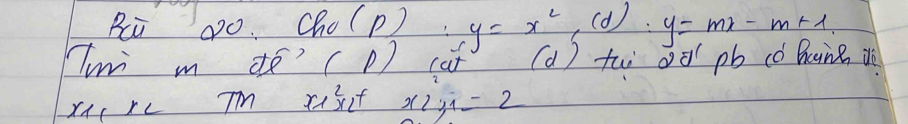 Bài 20. Cho (P) : y = x², (d) : y = mx - m + 1.
Tìm m để (P) cắt (d) tại 2đ pb có hoành độ
x1, x2 TM x1²x2 + x2²x1 = 2